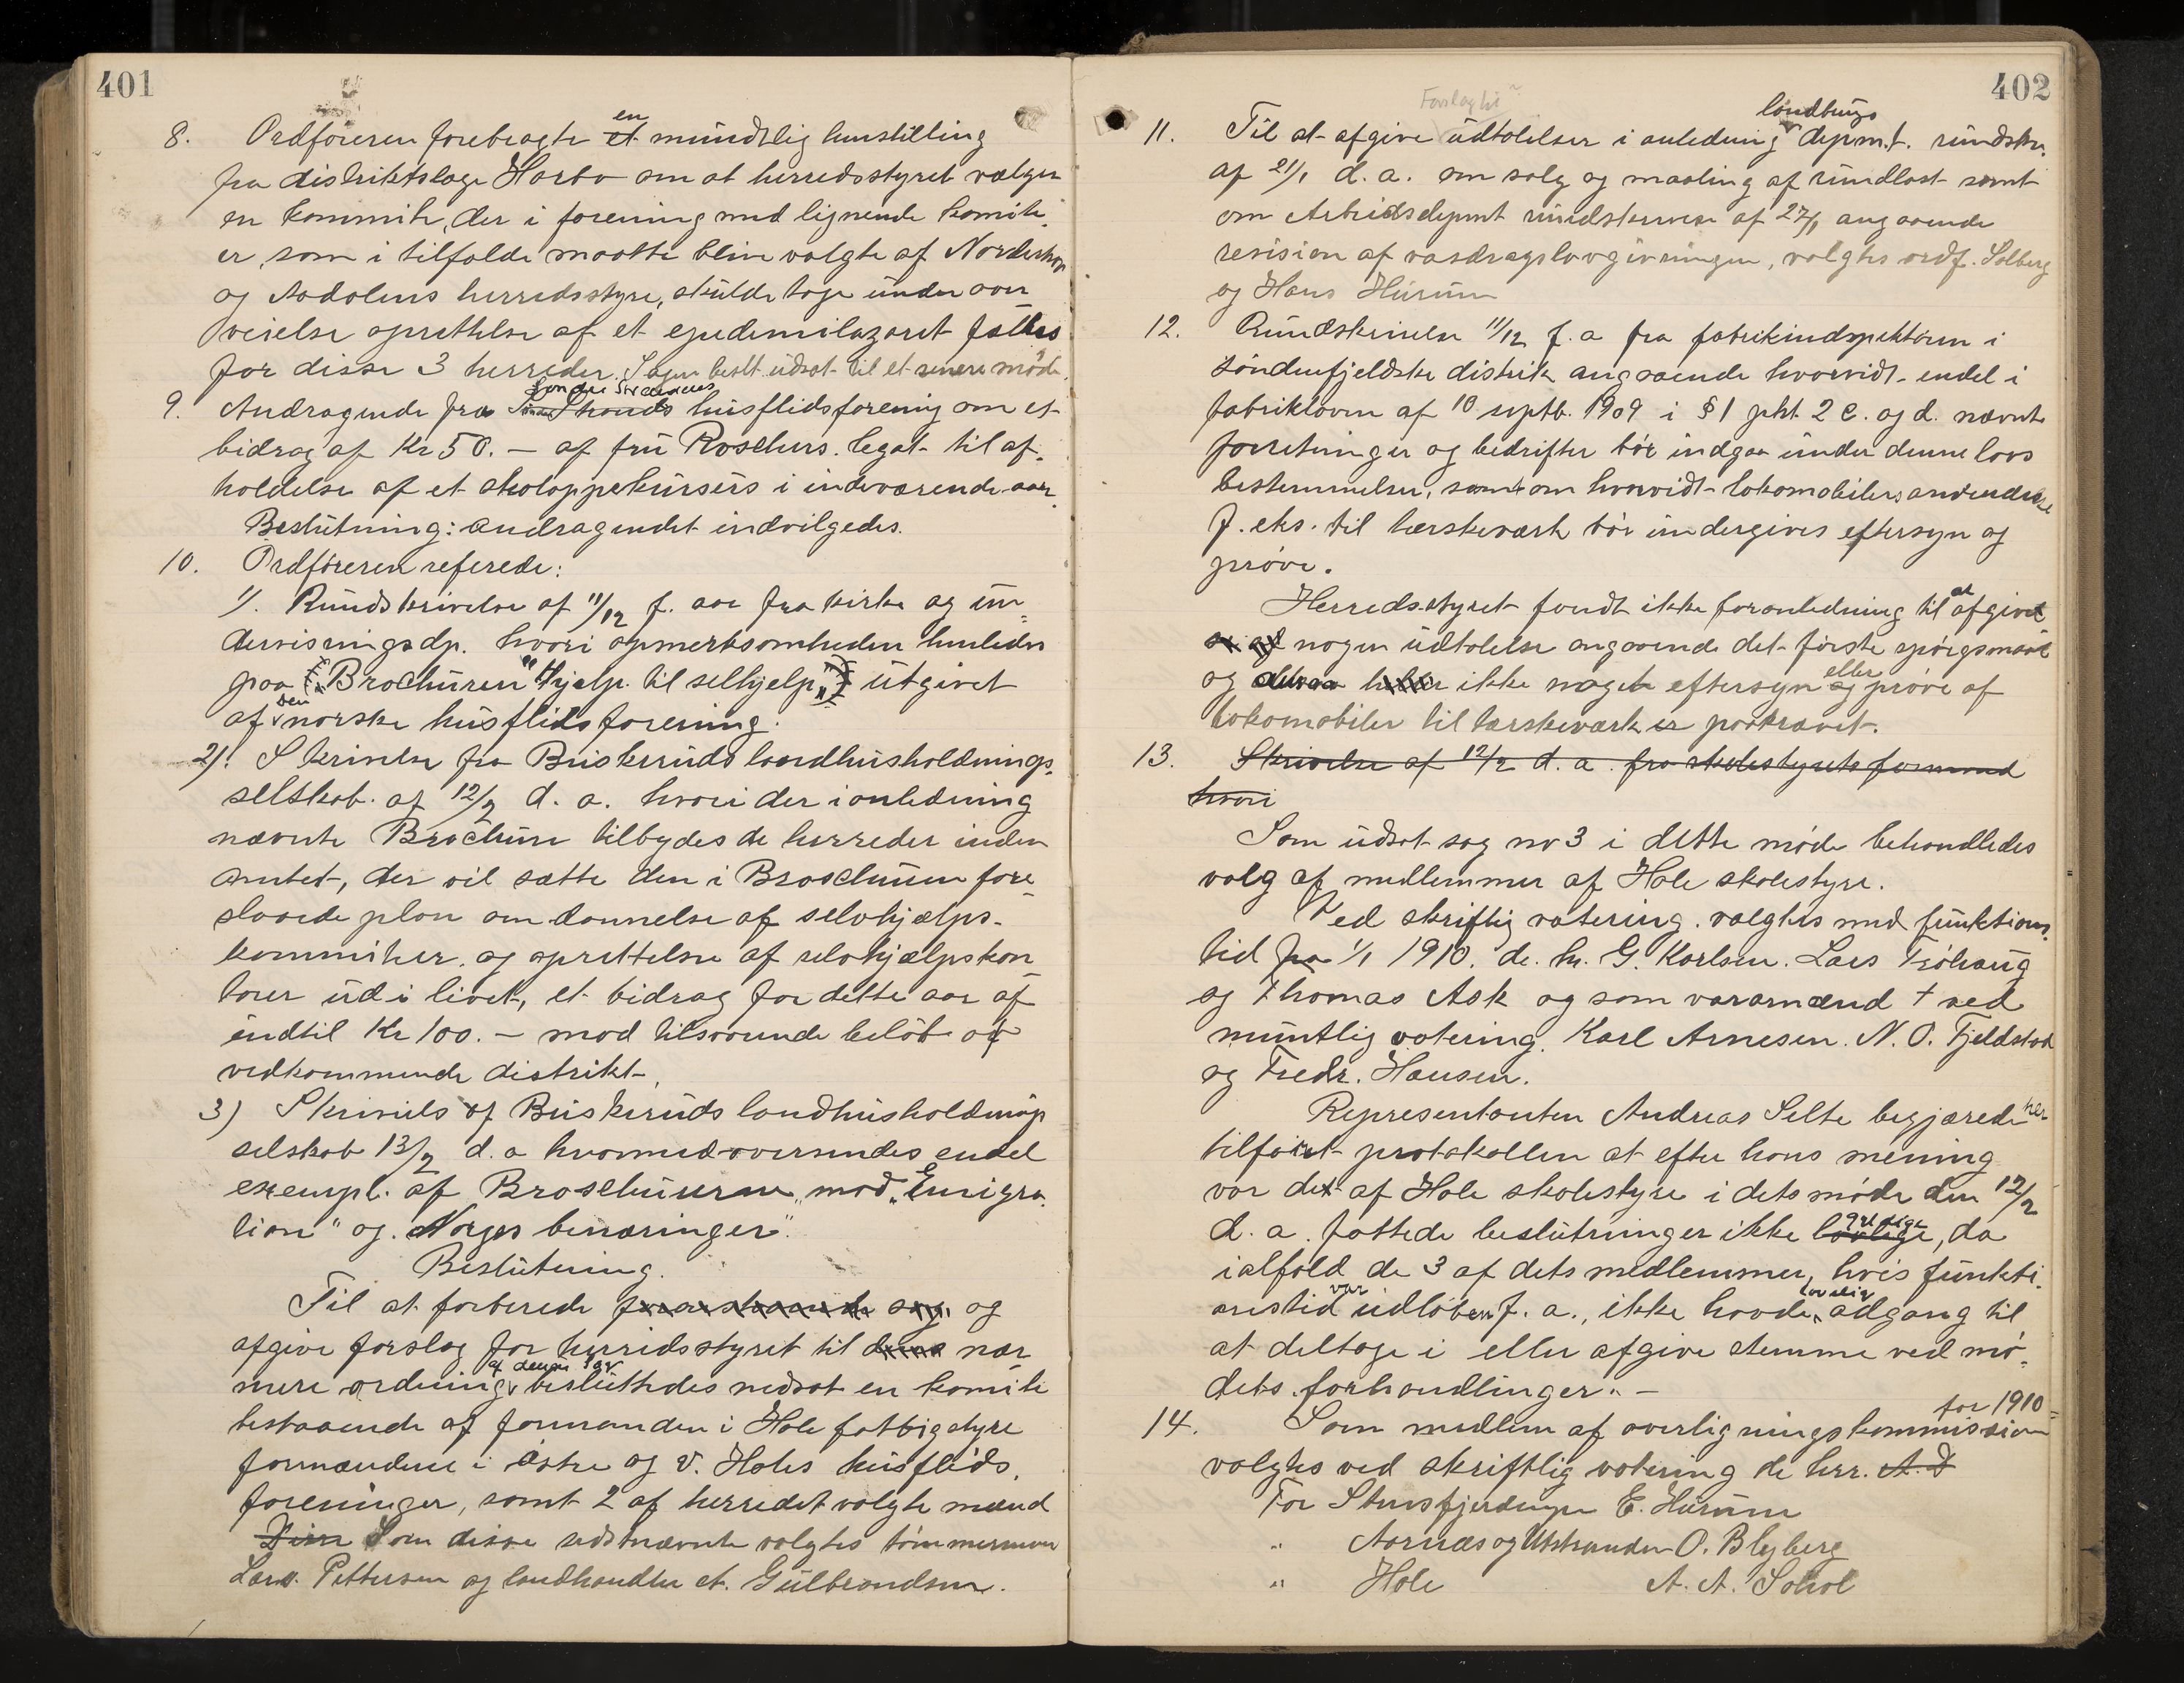 401
8. Ordføreren forebragte en et mundtlig henstilling
fra distriktslæge Harbo om at herredsstyret vælger
en kommite, der i forening med lignende komite
er, som i tilfælde maatte blive valgte af Norderhov
og Aadalens herredsstyre, skulde tage under over
veielse oprettelse af et epedemilazaret fælles
for disse 3 herreder. Sagen beslt. udsat til et senere møde.
9. Andragende fra Søndre Strandens Strands husflidsforenig om et
bidrag af Kr 50.— af fru Roschers legat til af-
holdelse af et skolappekursus i indeværende aar.
Beslutning: andragendet indvilgedes.
10. Ordføreren referede:
1/. Rundskrivelse af 11/12 f. aar fra kirke og un=
dervisningsdp. hvori opmerksomheden henledes
paa Brochuren "Hjelp til selhjelp" utgivet
af den norske husflids forening.
2/. Skrivelse fra Buskeruds landhusholdnings-
selskab af 12/2 d. a. hvori der i anledning
nævnte Brochure tilbydes de herreder inden
amtet, der vil sætte den i Broschuren fore
slaaede plan om dannelse af selvhjælps-
kommiteer og oprettelse af selvhjælpskon
torer ud i livet, et bidrag for dette aar af
indtil Kr 100.— mod tilsvarende beløb af
vedkommende distrikt.
3) Skrivels af Buskeruds landhusholdnings
selskab 13/2 d. a hvormed oversendes endel
exempl. af Broschurerne "mod Emigra-
tion" og "Norges benæringer".
Beslutning.
Til at forberede foranstaaende sag og
afgive forslag for herredsstyret til denne nær
mere ordening af denne sag besluttedes nedsat en komite
bestaaende af formanden i Hole fattigstyre
formændene i østre og v. Holes husflids-
foreninger, samt 2 af herredet valgte mænd
Som disse sidstnævnte valgtes tømmermen
Lars Pettersen og landhandler A. Gulbrandsen.
402
Forslag til
11. Til at afgive udtalelser i anledning landbrugs depm.t. rundskr.
af 21/1 d. a. om salg og maaling af rundlast samt
om Arbeidsdepmt rundskrivelse af 27/1 angaaende
revision af vasdragslovgivningen, valgtes ordf. Solberg
og Hans Hurum
12. Rundskrivelse 11/12 f. a fra fabrikindspektøren i
søndenfjeldske distrik angaaende hvorvidt endel i
fabrikloven af 10 septb. 1909 i § 1 pkt. 2 c. og d. nævnte
forretninger og bedrifter bør indgaa under denne lovs
bestemmelser, samt om hvorvidt lokomobilers anvendelse
f. eks. til tærskeværk bør undergives eftersyn og
prøve.
Herredsstyret fandt ikke foranledning til at afgive
nogen udtalelse angaaende det første spørgsmaal
og ikke noget eftersyn eller og prøve af
lokomobiler til tærskeværk er paakrævet.
13. Skrivelse af 12/2 d. a. fra skolestyrets formand
hvori
Som udsat sag no 3 i dette møde behandledes
valg af medlemmer af Hole skolestyre.
Ved skriftlig votering valgtes med funktions
tid fra 1/1 1910. de hr. G. Karlsen. Lars Frøhaug
og Thomas Ask og som varamænd + ved
muntlig votering. Karl Arnesen. N. O. Fjeldstad
og Fredr. Hansen.
Representanten Andreas Selte begjærede her
tilført protokollen at efter hans mening
var det af Hole skolestyre i dets møde den 12/2
d. a. fattede beslutninger ikke gyldige lovlige, da
ialfald de 3 af dets medlemmer, hvis funkti-
onstid var udløben f. a., ikke havde lovlig adgang til
at deltage i eller afgive stemme ved mø-
dets forhandlinger.—
14. Som medlem af overligningskommission for 1910
valgtes ved skriftlig votering de herr. A. D
For Stensfjerdingen E. Hurum
" Aarnæs og Utstranden O. Blyberg
" Hole A. A. Sohol